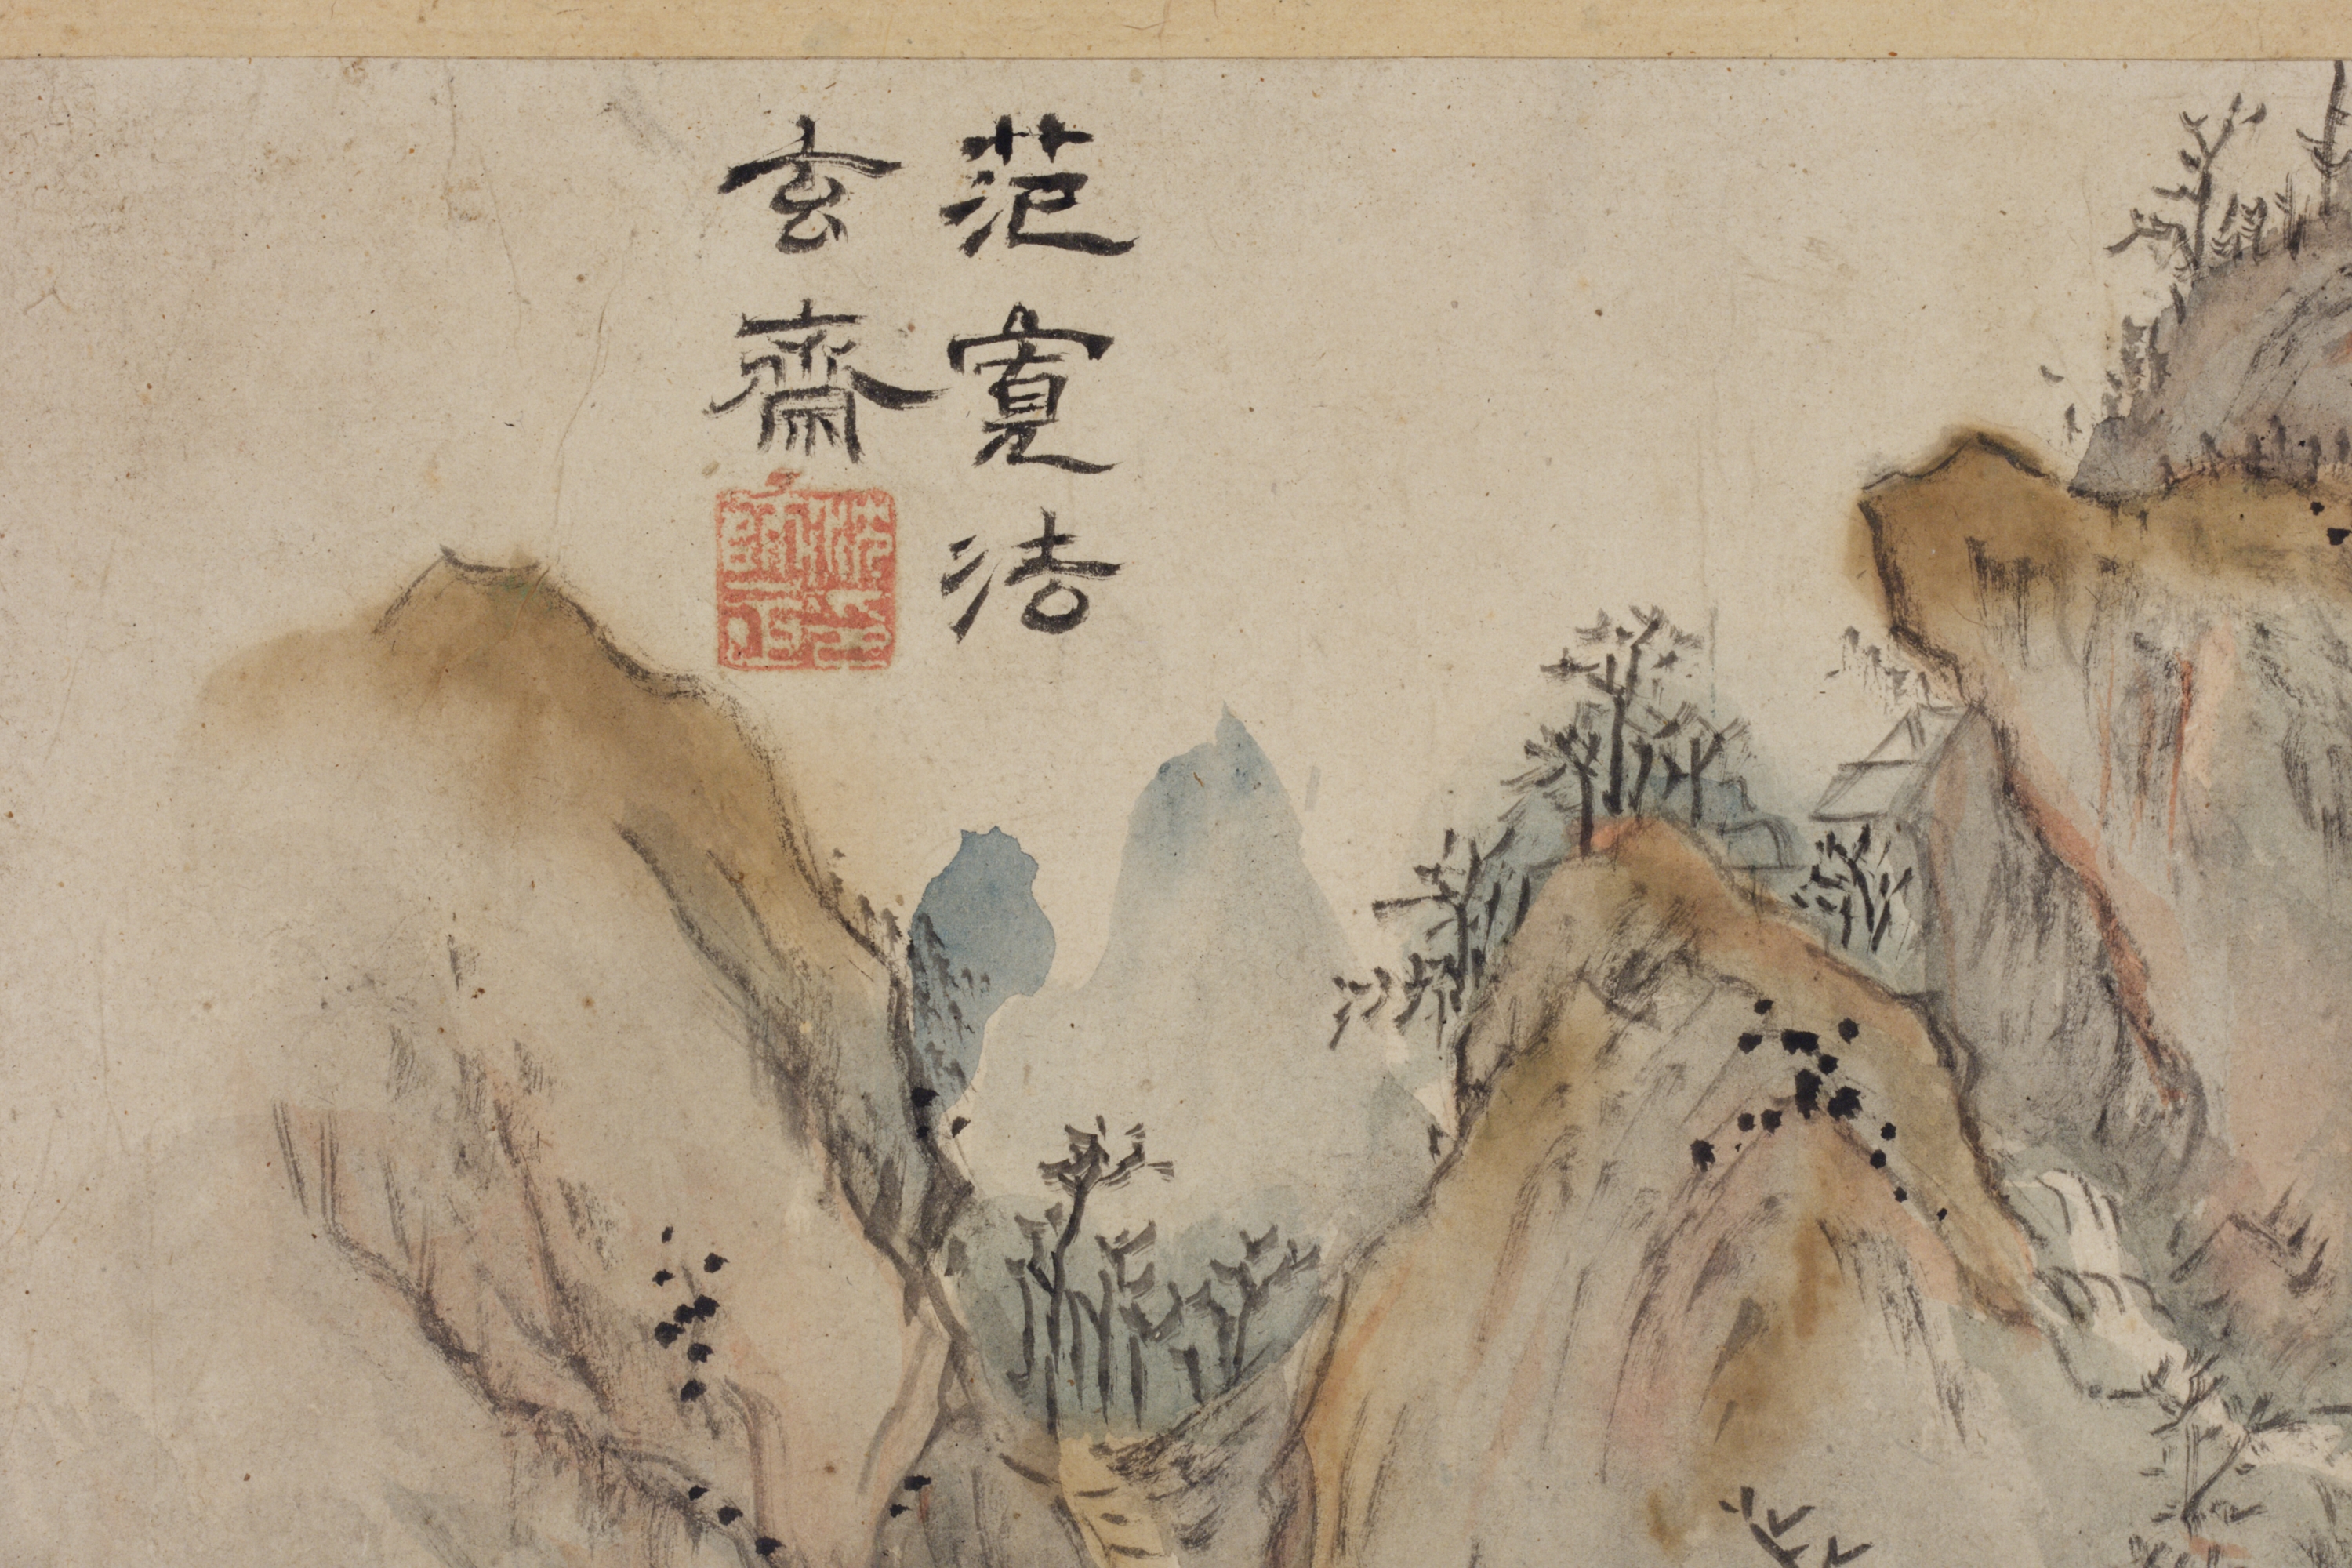 范寬法
玄齋